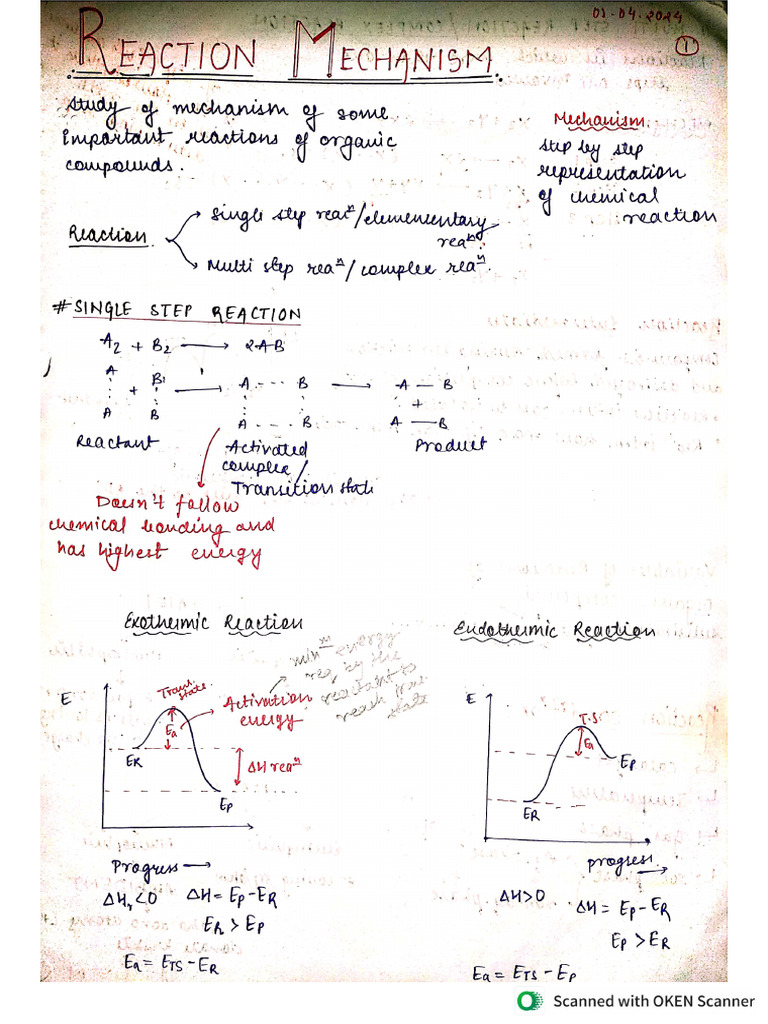 01-04-2024
REACTION MECHANISM
1
Study of mechanism of some
important reactions of organic
compounds.
Mechanism:
step by step
representation
of chemical
reaction
Reaction
Single step reacⁿ/elemementary
reaⁿ
Multi step reaⁿ/complex reaⁿ.
# SINGLE STEP REACTION
A₂ + B₂ → 2AB
A B A --- B A — B
+ → → +
A B A --- B A — B
Reactant
Activated
complex/
Transition state
Product
Doesn't follow
chemical bonding and
has highest energy
Exothermic Reaction
Endothermic Reaction
E
Trans.
state
Ea
Activation
energy
minᵐ energy
req. by the
reactant to
reach
state
ER
ΔH reaⁿ
EP
E
T.S
Ea
EP
ER
Progress →
progress. →
ΔHᵣ<0 ΔH = EP-ER
ER > EP
Ea = ETS - ER
ΔH>0 ΔH = EP-ER
EP > ER
Ea = ETS - EP
Scanned with OKEN Scanner